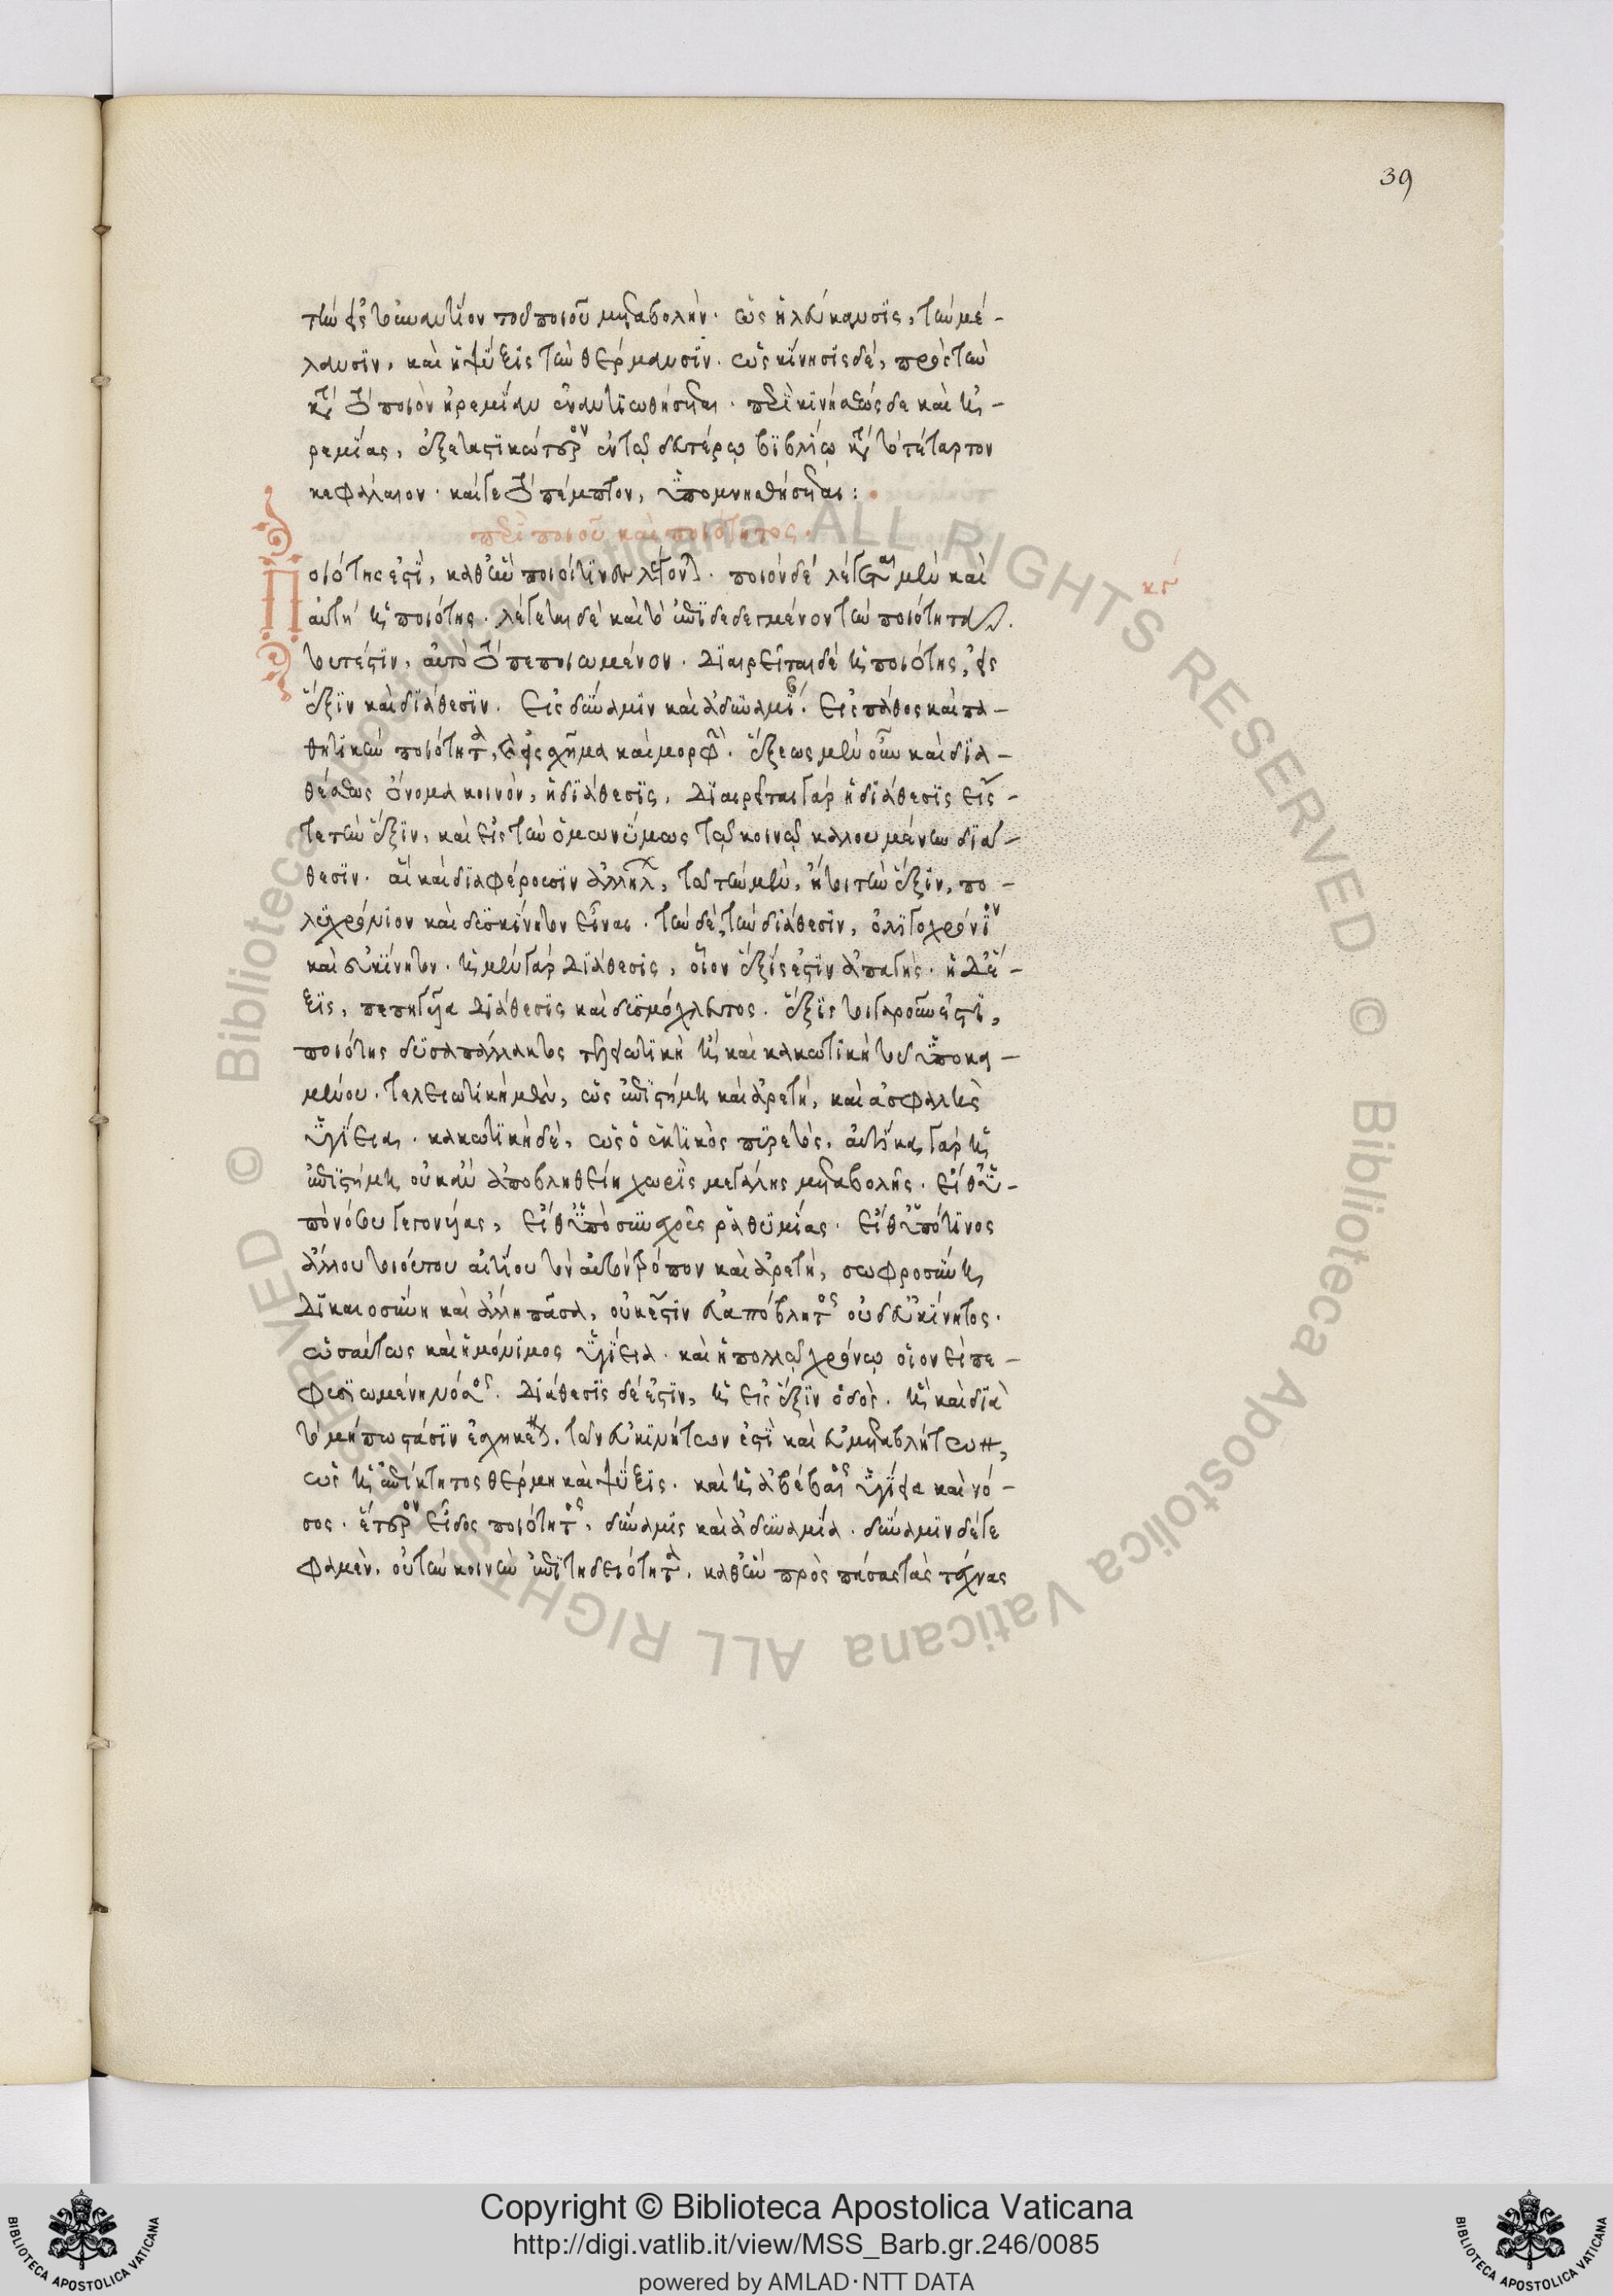 39
τὴν εἰς τὸ ἐναντίον τοῦ ποιοῦ μεταβολήν. ὡς ἡ λεύκανσις, τὴν μέ-
λανσιν, καὶ ἡ ψῦξις τὴν θέρμανσιν. ὡς κίνησις δὲ, πρὸς τὴν
κατὰ τὸ ποιὸν ἠρεμίαν ἐναντιωθήσεται. περὶ κινήσεως δε καὶ ἠ-
ρεμίας, ἐξεταστικώτερον ἐν τῷ δευτέρῳ βιβλίῳ κατὰ τὸ τέταρτον
κεφάλαιον. καί γε τὸ πέμπτον, ὑπομνησθήσεται:
περὶ ποιοῦ καὶ ποιότητος.
κγ
Ποιότης ἐστὶ, καθ' ἣν ποιοί τινες λέγονται. ποιὸν δὲ λέγεται μὲν καὶ
αὐτὴ ἡ ποιότης. λέγεται δὲ καὶ τὸ ἐπιδεδεγμένον τὴν ποιότητα.
τουτέστιν, αὐτὸ τὸ πεποιωμένον. Διαιρεῖται δὲ ἡ ποιότης, εἰς
ἕξιν καὶ διάθεσιν. Εἰς δύναμιν καὶ ἀδυναμίαν. Εἰς πάθος καὶ πα-
θητικὴν ποιότητα, καὶ εἰς σχῆμα καὶ μορφήν. ἕξεως μὲν οὖν καὶ δια-
θέσεως ὄνομα κοινὸν, ἡ διάθεσις. Διαιρεῖται γὰρ ἡ διάθεσις εἴς
τε τὴν ἕξιν, καὶ εἰς τὴν ὁμωνύμως τῷ κοινῷ καλουμένην διά-
θεσιν. αἳ καὶ διαφέρουσιν ἀλλήλων, τῷ τὴν μὲν, ἤτοι τὴν ἕξιν, πο-
λυχρόνιον καὶ δυσκίνητον εἶναι. τὴν δὲ, τὴν διάθεσιν, ὀλιγοχρόνιον
καὶ εὐκίνητον. ἡ μὲν γὰρ Διάθεσις, οἷον ἕξίς ἐστιν ἀπαγής. ἡ Δὲ ἕ-
ξις, πεπηγυῖα Διάθεσις καὶ δυσμόχλευτος. ἕξις τοιγαροῦν ἐστὶ,
ποιότης δυσαπάλλακτος τελειωτικὴ ἢ καὶ κακωτικὴ τοῦ ὑποκει-
μένου. τελειωτικὴ μὲν, ὡς ἐπιστήμη καὶ ἀρετὴ, καὶ ἀσφαλὴς
ὑγίεια. κακωτικὴ δὲ, ὡς ὁ ἑκτικὸς πυρετός. αὐτίκα γὰρ ἡ
ἐπιστήμη οὐκ ἂν ἀποβληθείη χωρὶς μεγάλης μεταβολῆς. εἴθ' ὑ-
πὸ νόσου γεγονυίας, εἴθ' ὑπὸ συχνῆς ῥαθυμίας. εἴθ' ὑπό τινος
ἄλλου τοιούτου αἰτίου τὸν αὐτὸν τρόπον καὶ ἀρετὴ, σωφροσύνη
Δικαιοσύνη καὶ ἄλλη πᾶσα, οὐκ ἔστιν εὐαπόβλητος οὐδ' εὐκίνητος.
ὡσαύτως καὶ ἡ μόνιμος ὑγίεια. καὶ ἡ πολλῷ χρόνῳ οἷον εἰ πε-
φυσιωμένη νόσος. Διάθεσις δέ ἐστιν, ἡ εἰς ἕξιν ὁδός. ἣ καὶ διὰ
τὸ μήπω στάσιν ἐσχηκέναι. τῶν εὐκινήτων ἐστὶ καὶ εὐμεταβλήτων,
ὡς ἡ ἐπίκτητος θέρμη καὶ ψῦξις. καὶ ἡ ἀβέβαιος ὑγίεια καὶ νό-
σος. ἕτερον εἶδος ποιότητος, δύναμις καὶ ἀδυναμία. δύναμιν δέ γε
φαμὲν, οὐ τὴν κοινὴν ἐπιτηδειότητα, καθ' ἣν πρὸς πάσας τὰς τέχνας
Copyright © Biblioteca Apostolica Vaticana
http://digi.vatlib.it/view/MSS_Barb.gr.246/0085
powered by AMLAD·NTT DATA
© Biblioteca Apostolica Vaticana ALL RIGHTS RESERVED
© Biblioteca Apostolica Vaticana ALL RIGHTS RESERVED
BIBLIOTECA APOSTOLICA VATICANA
BIBLIOTECA APOSTOLICA VATICANA